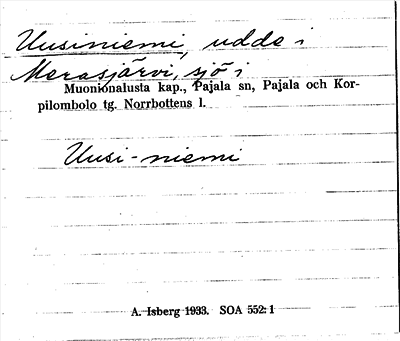 Uusiniemi, udde i
Merasjärvi, sjö i
Muonionalusta kap., Pajala sn, Pajala och Kor-
pilombolo tg. Norrbottens l.
Uusi-niemi
A. Isberg 1933. SOA 552:1